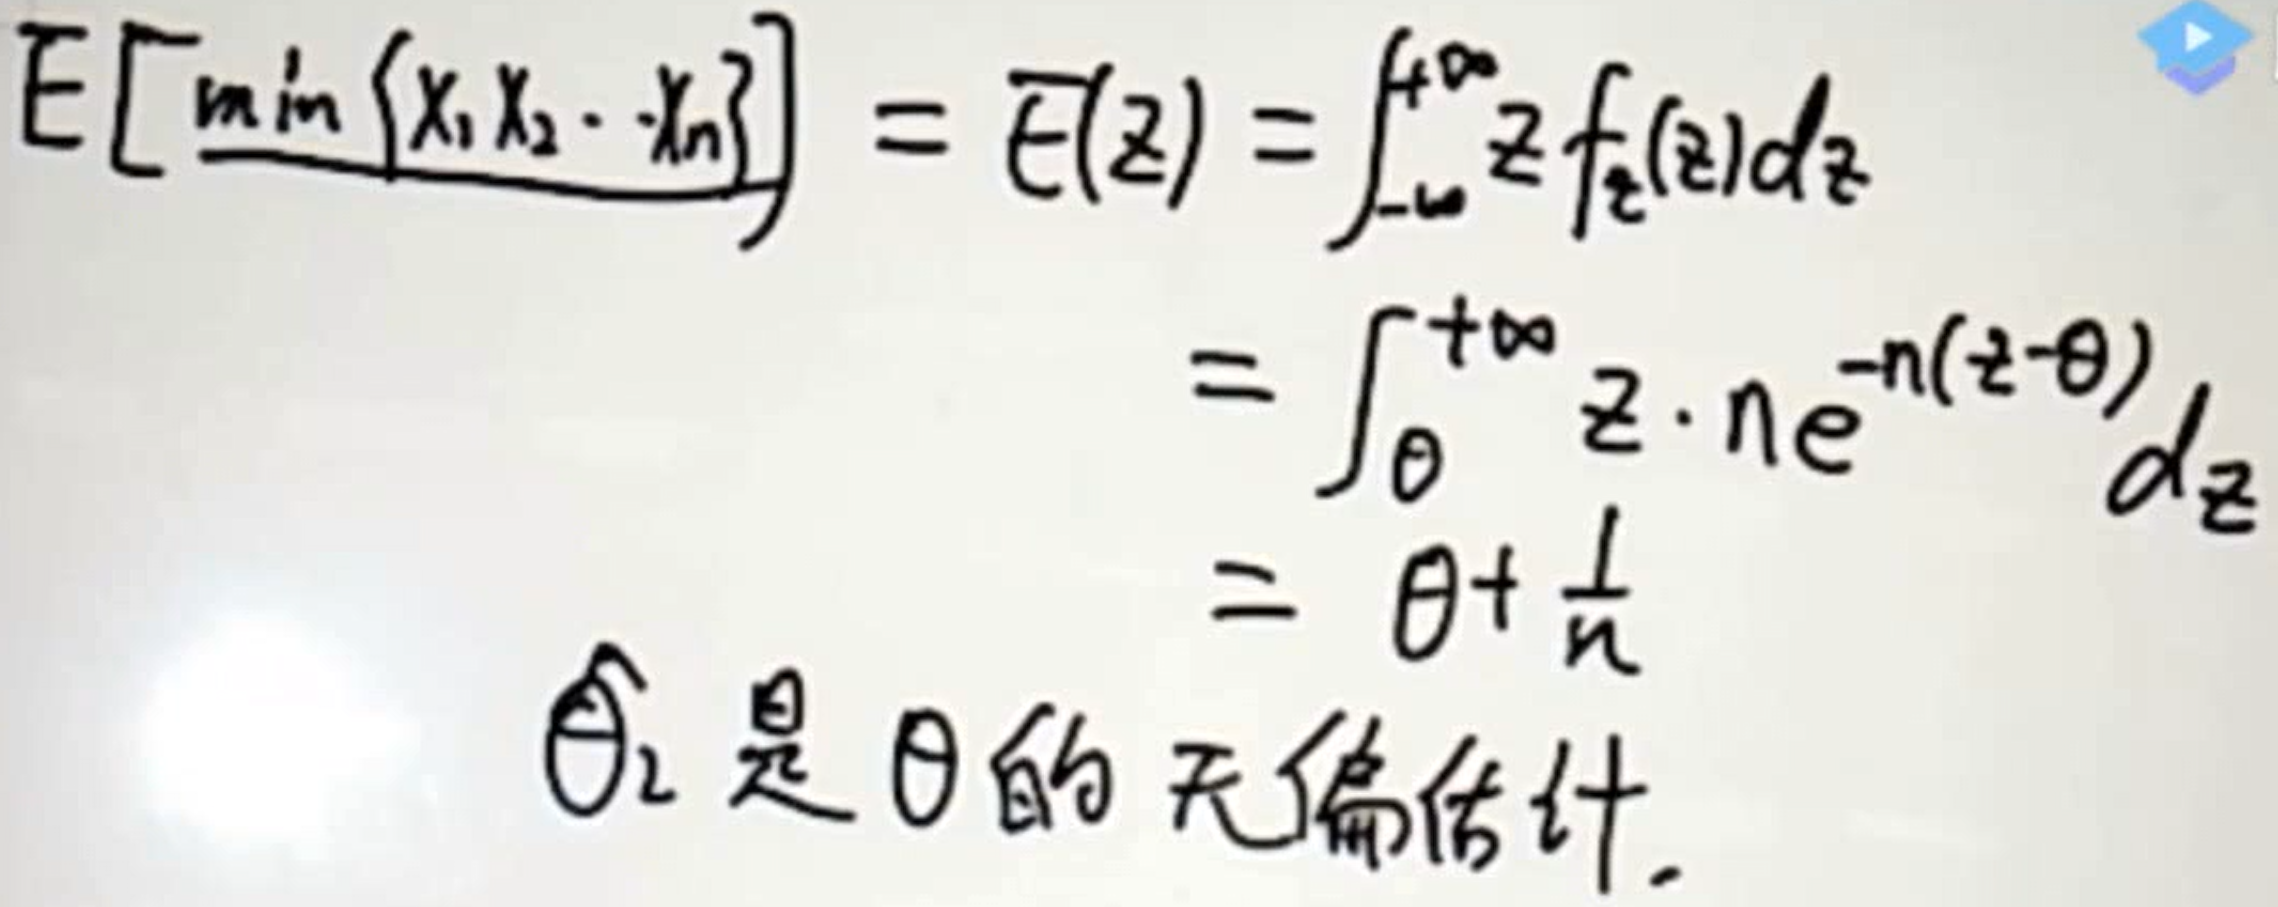 E[min{X₁X₂··Xₙ}] = E(Z) = ∫_{-∞}^{+∞} z f_z(z)dz
= ∫_θ^{+∞} z·ne^{-n(z-θ)}dz
= θ+1/n
θ̂₂是θ的无偏估计.